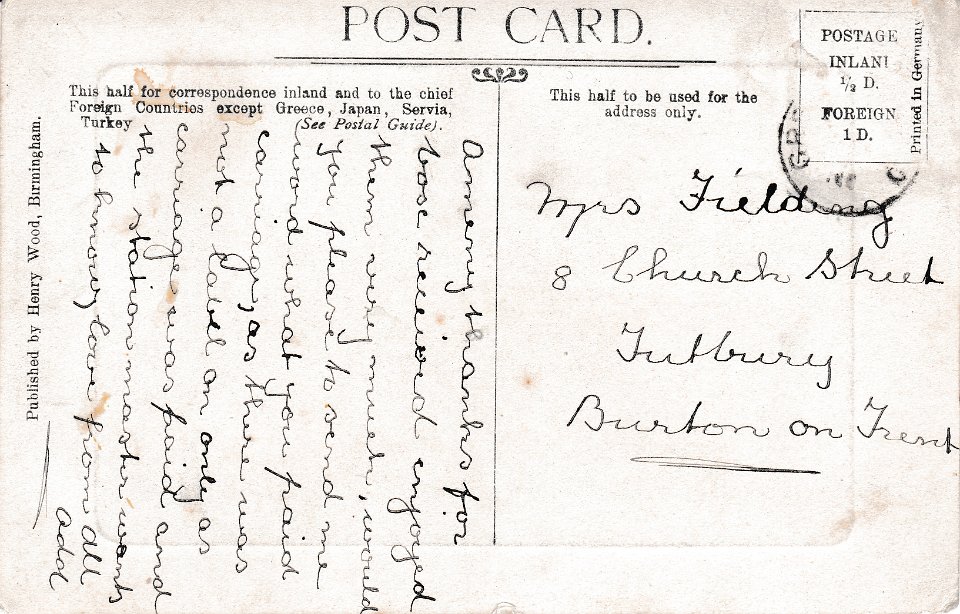 POST CARD.
This half for correspondence inland and to the chief
Foreign Countrios except Greece, Japan, Servia,
Turkey (See Postal Guide).
This half to be used for the
address only.
POSTAGE
INLAN
½ D.
FOREIGN
1 D.
Printed in Germany
Published by Henry Wood, Birmingham.
Mrs Fielding
8 Church Street
Tutbury
Burton on Trent
many thanks for
received enjoyed
them very much, would
you please to send me
word what you paid
carriage, as there was
not a label on only as
carriage was paid and
the station master wants
to know, love from all